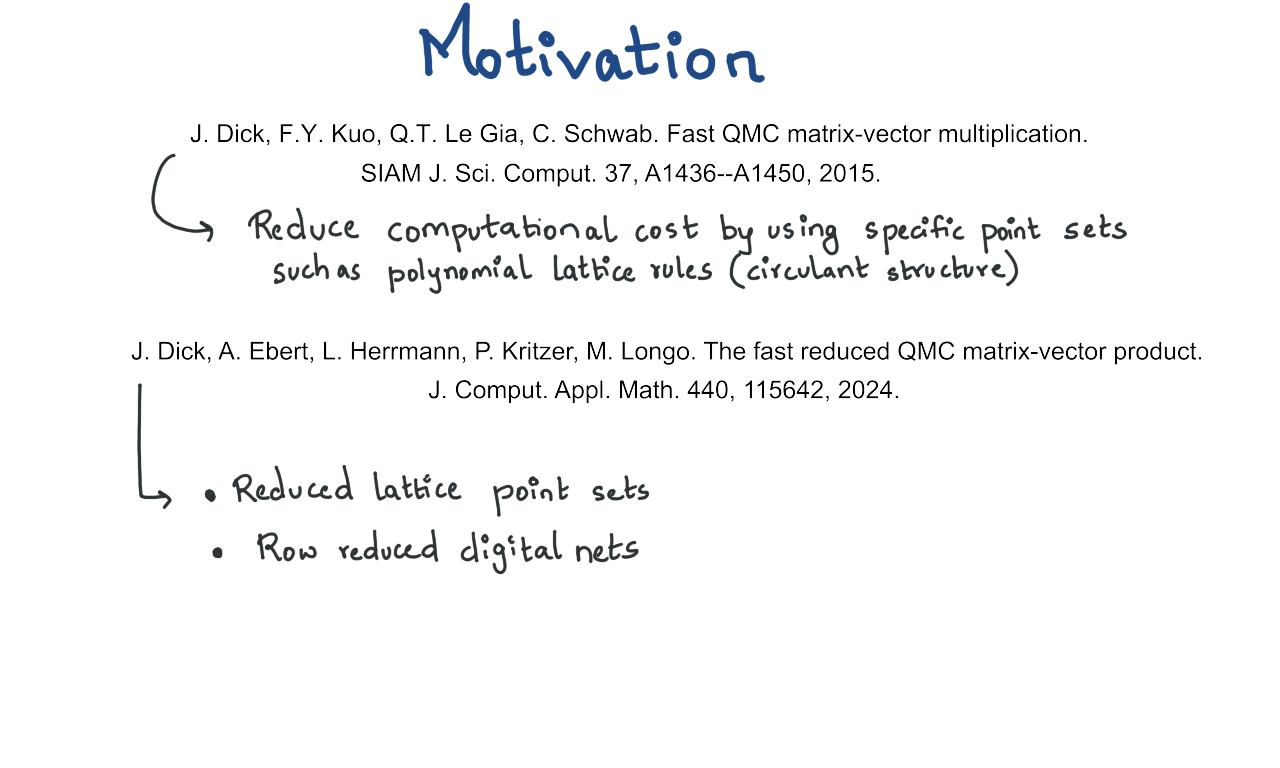 Motivation
J. Dick, F.Y. Kuo, Q.T. Le Gia, C. Schwab. Fast QMC matrix-vector multiplication.
SIAM J. Sci. Comput. 37, A1436--A1450, 2015.
Reduce computational cost by using specific point sets
such as polynomial lattice rules (circulant structure)
J. Dick, A. Ebert, L. Herrmann, P. Kritzer, M. Longo. The fast reduced QMC matrix-vector product.
J. Comput. Appl. Math. 440, 115642, 2024.
• Reduced lattice point sets
• Row reduced digital nets